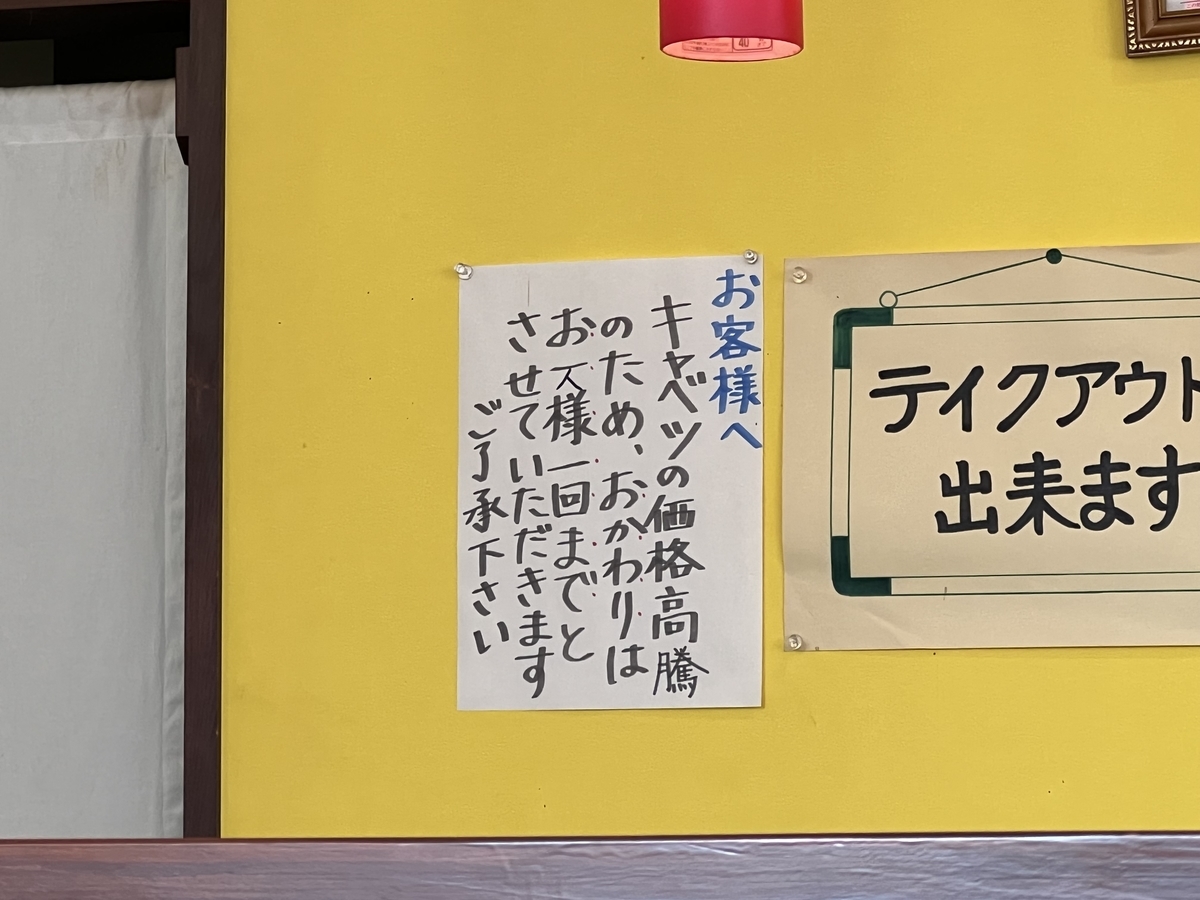 お客様へ
キャベツの価格高騰
のため、おかわりは
お一人様一回までと
させていただきます
ご了承下さい
テイクアウト
出来ます
40